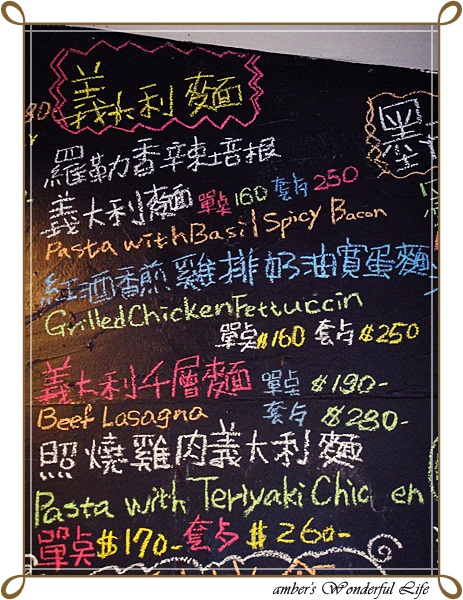 義大利麵
墨
羅勒香辣培根
義大利麵 單点160 套歺250
Pasta with Basil Spicy Bacon
紅酒香煎雞排奶油寬蛋麵
Grilled Chicken Fettuccin
單点$160 套歺$250
義大利千層麵 單点 $190-
Beef Lasagna 套歺 $290-
照燒雞肉義大利麵
Pasta with Teriyaki Chic en
單点$170- 套歺$260-
amber's Wonderful Life